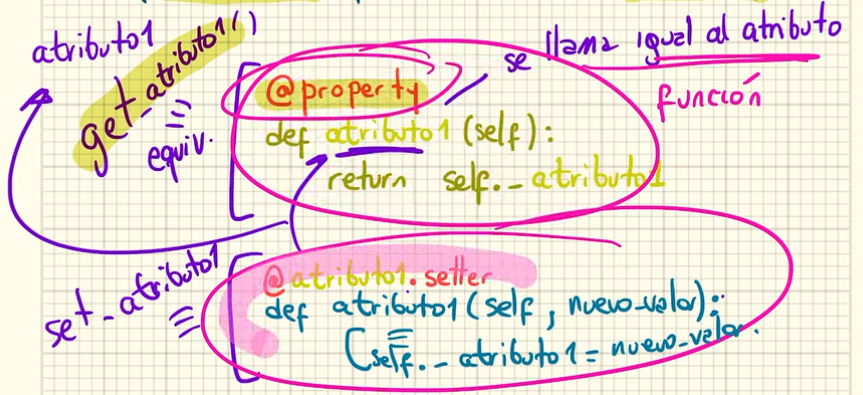 atributo1
get_atributo1()
equiv.
se llama igual al atributo
función
@property
def atributo1 (self):
return self._atributo1
set_atributo1
@atributo1.setter
def atributo1 (self, nuevo_valor):
self._atributo1 = nuevo_valor.